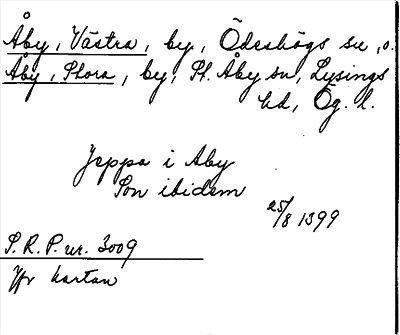 Å
Åby, Västra, by, Ödeshögs sn, o.
Åby, Stora, by, St. Åby sn, Lysings
hd, Ög. l.
Jeppa i Aby
Son ibidem
25/8 1399
S.R.P. nr. 3009
Jfr kartan